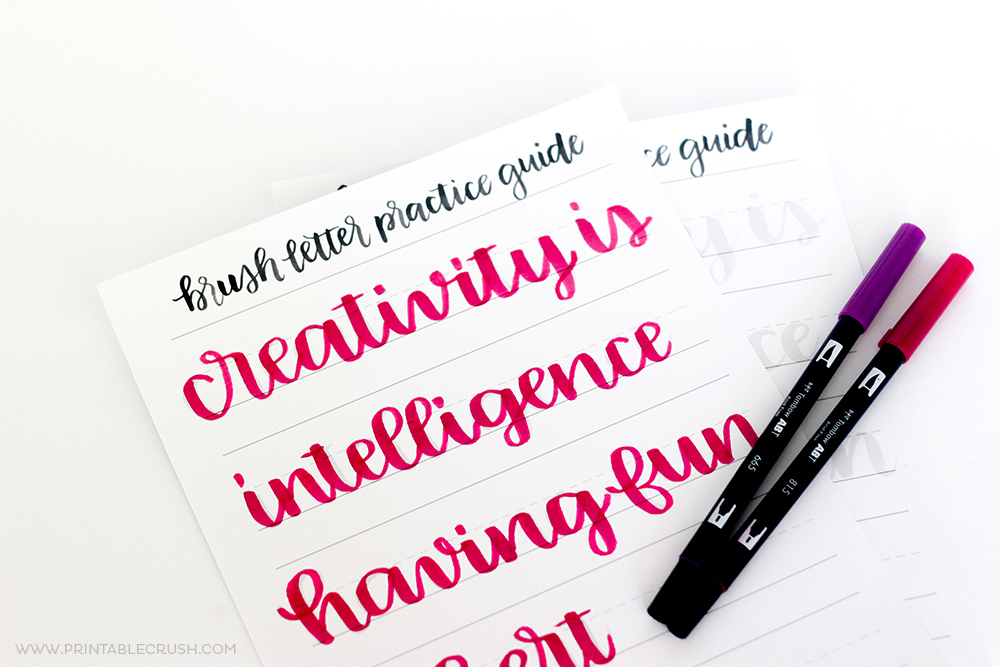 brush letter practice guide
creativity is
intelligence
having fun
ce guide
y is
ce
n
Tombow ABT
665
Tombow ABT
815
WWW.PRINTABLECRUSH.COM